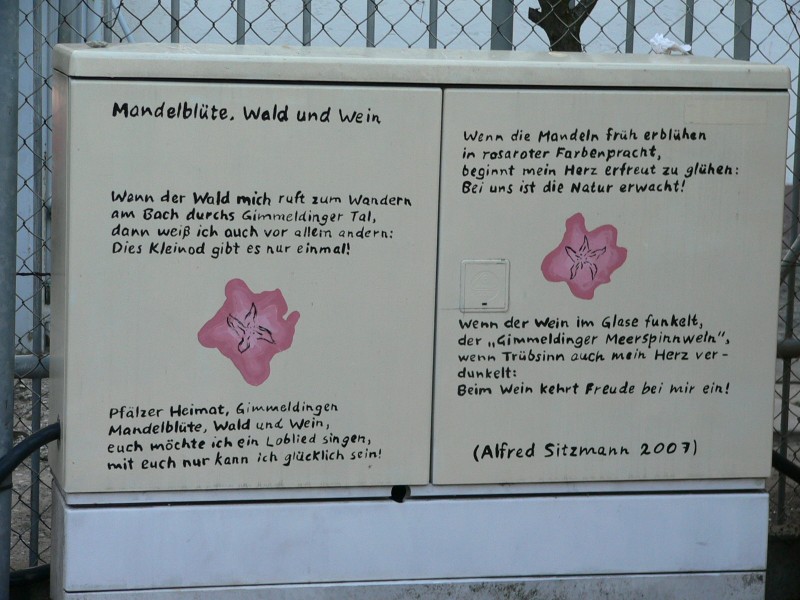 Mandelblüte, Wald und Wein
Wenn der Wald mich ruft zum Wandern
am Bach durchs Gimmeldinger Tal,
dann weiß ich auch vor allem andern:
Dies Kleinod gibt es nur einmal!
Pfälzer Heimat, Gimmeldingen
Mandelblüte, Wald und Wein,
euch möchte ich ein Loblied singen,
mit euch nur kann ich glücklich sein!
Wenn die Mandeln früh erblühen
in rosaroter Farbenpracht,
beginnt mein Herz erfreut zu glühen:
Bei uns ist die Natur erwacht!
Wenn der Wein im Glase funkelt,
der „Gimmeldinger Meerspinnwein“,
wenn Trübsinn auch mein Herz ver-
dunkelt:
Beim Wein kehrt Freude bei mir ein!
(Alfred Sitzmann 2007)